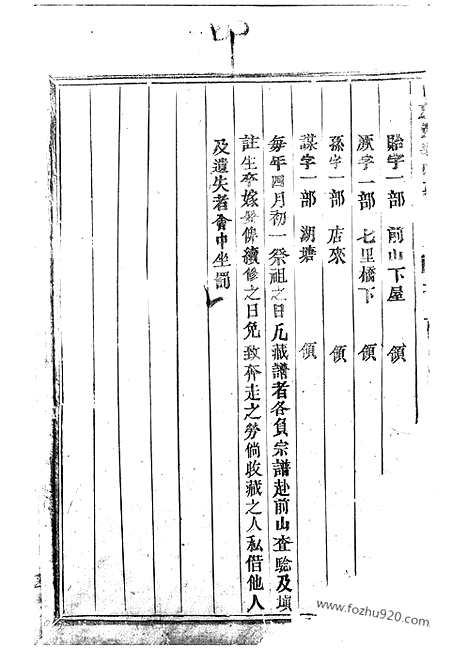 貽字一部　前山下屋　領
厥字一部　七里橋下　領
孫字一部　店來　領
謀字一部　湖塘　領
每年四月初一祭祖之日凡藏譜者各負宗譜赴前山查驗及填
註生卒嫁娶俾續修之日免致奔走之勞倘收藏之人私借他人
及遺失者會中坐罰
www.fozhu920.com